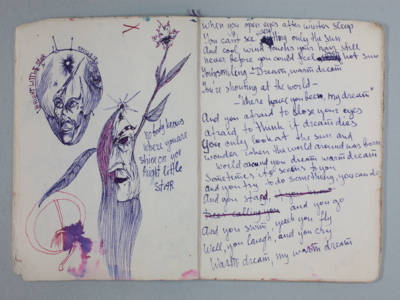 nobody knows
where you are
shine on you
bright little
star
When you open eyes after winter sleep
You can't see only the sun
And cool wind touchs your hair still
never before you could feel hot sun
You're smiling – Dream, warm dream
You're shouting at the world –
– "Where have you been, my dream"
And you afraid to close your eyes
afraid to think if dream dies
You only look at the sun and
wonder when the world around was born
World around you dream warm dream
Sometimes it seems to you
And you try to do something you can do
And you stand,
been calling you and you go
And you swim yeah you fly
Well, you laugh, and you cry
Warm dream, my warm dream